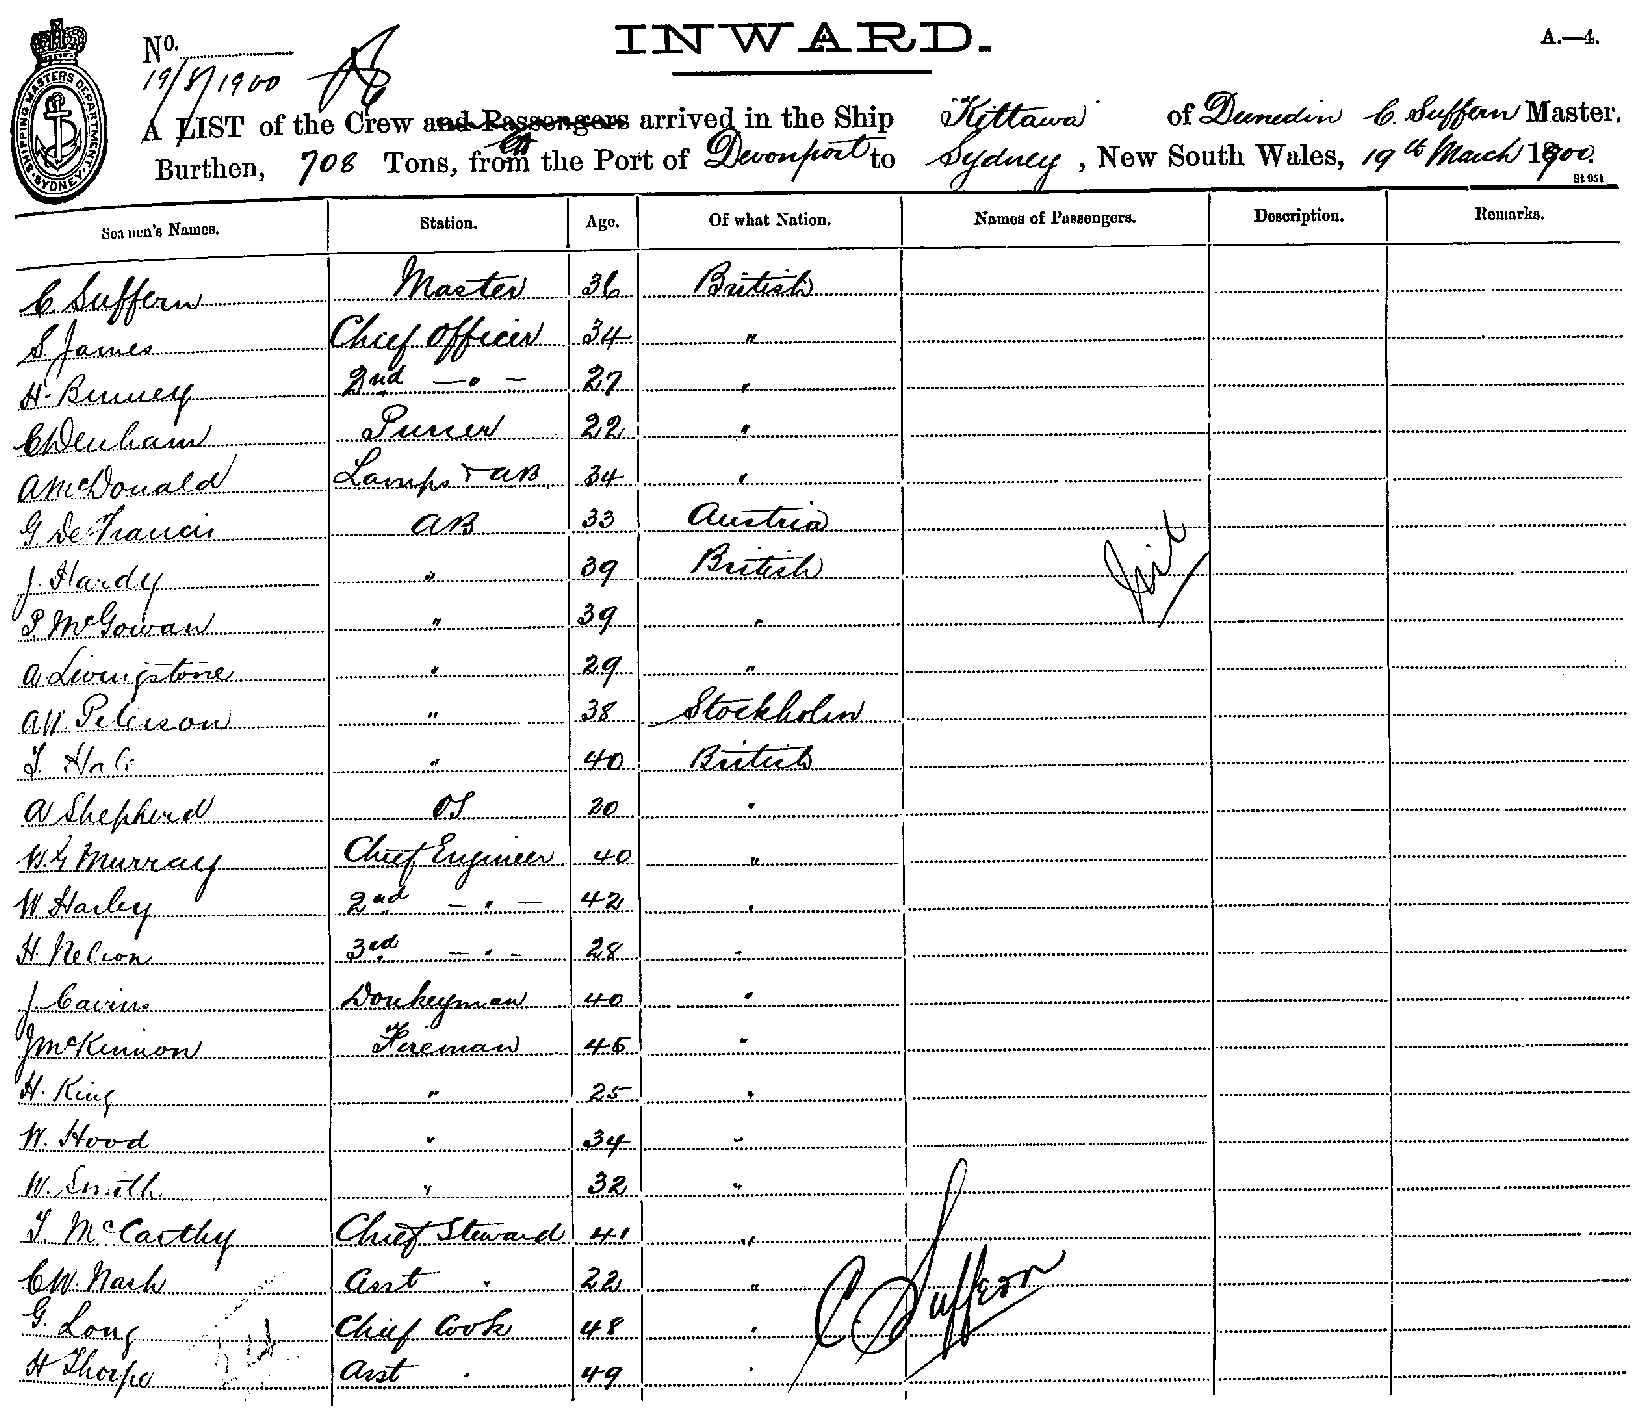 INWARD.
A.—4.
No.
19/3/1900
A LIST of the Crew and Passengers arrived in the Ship Kittawa of Dunedin C. Suffern Master.
Burthen, 708 Tons, from the Port of Devonport to Sydney, New South Wales, 19th March 1900.
St 051
SHIPPING MASTERS DEPARTMENT SYDNEY
Seamen's Names. Station. Age. Of what Nation. Names of Passengers. Description. Remarks.
C Suffern Master 36 British
S James Chief Officer 34 "
H. Binney 2nd — " — 27 "
C Denham Purser 22 "
A McDonald Lamps & AB 34 "
G De Francis AB 33 Austria
J. Hardy " 39 British
P McGowan " 39 "
A Livingstone " 29 "
AW. Peterson " 38 Stockholm
T. " 40 British
A Shepherd OS 20 "
W.G Murray Chief Engineer 40 "
W Harley 2nd — " — 42 "
H. Nelson 3rd — " — 28 "
J Cavins Donkeyman 40 "
J McKinnon Fireman 45 "
H. King " 25 "
W. Hood " 34 "
W. Smith " 32 "
T. McCarthy Chief Steward 41 "
C.W. Nash Asst " 22 "
G. Long Chief Cook 48 "
H Thorpe Asst " 49 "
Nil
C Suffern